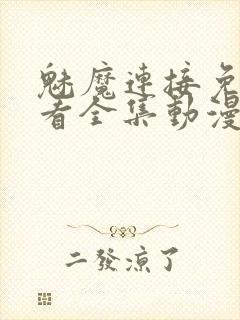 魅魔連接免
看全集動漫
二發涼了